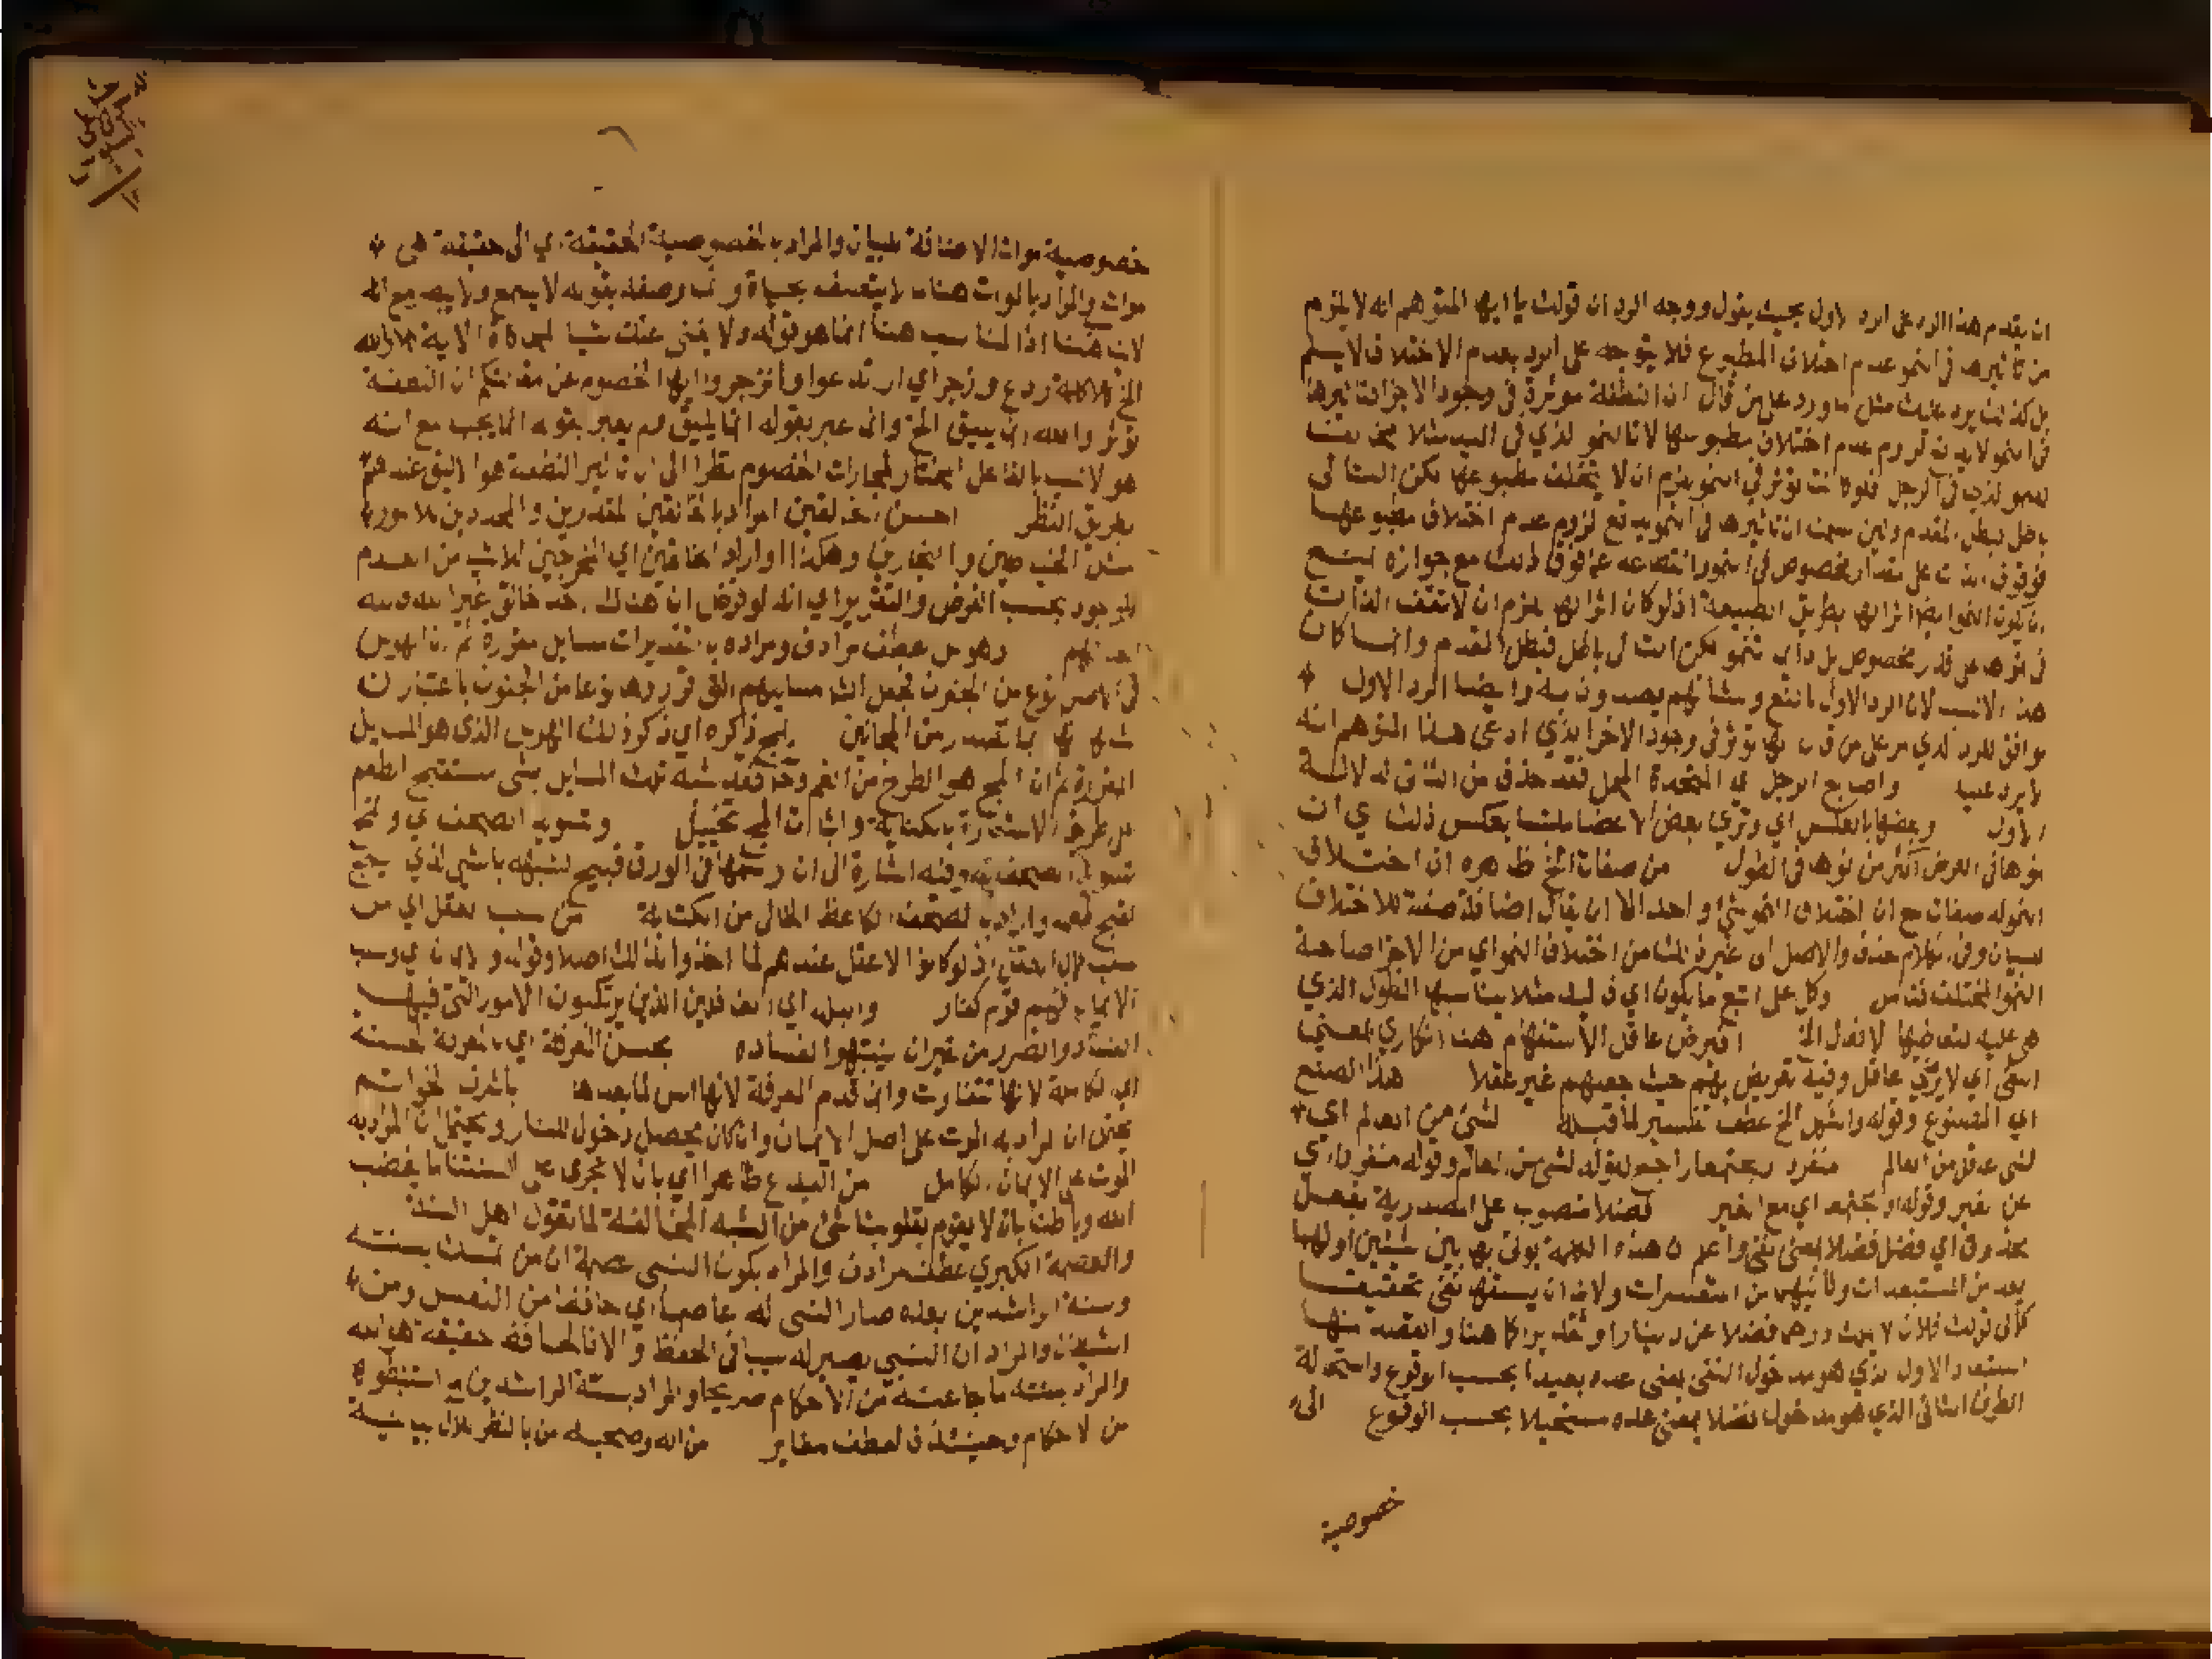 ان يقدم هذا الرد على الرد الاول بحيث يقول ووجه الرد ان قولك يا ايها المتوهم انه لا يلزم
من تاثيرها في النمو عدم اختلاف المطبوع فلا يتوجه على الرد بعدم الاختلاف لا يسلم
بل كذلك يرد عليك مثل ما ورد على من قال ان النطفة موثرة في وجود الاجزا تاثيرها
في النمو لا بد ان لزوم عدم اختلاف مطبوعها لان النمو الذي في اليد مثلا مخالف
للنمو الذي في الرجل فلو كانت توثر في النمو يلزم ان لا يختلف مطبوعها لكن التالي
باطل فبطل المقدم ولئن سلمت ان تاثيرها في النمو يدفع لزوم عدم اختلاف مطبوعها
فوقوف الذات على مقدار مخصوص في النمو وانقطاعه عما فوق ذلك مع جوازه يمنع
ان يكون النمو ايضا اثرا لها بطريق الطبيعة اذ لو كان اثرا لها يلزم ان لا تقف الذات
في نموها على قدر مخصوص بل دايما تنمو لكن التالي باطل فبطل المقدم وانما كان
هذا الانسب لان الرد الاول
موافق للرد الذي مر على من قال انها توثر في وجود الاخر الذي ادعى هذا المتوهم انه
لا يرد عليه واصابع الرجل اي المتحدة المحل فقد حذف من الثاني لدلالة
الاول وبعضها بالعكس اي وترى بعض الاعضا ملتبسا بعكس ذلك اي ان
نموها في العرض اكثر من نموها في الطول من صفات الخ ظاهره ان اختلاف
النمو له صفات مع ان اختلاف النمو شيء واحد الا ان يقال اضافة صفة للاختلاف
للبيان وفي الكلام حذف والاصل اي غير ذلك من اختلاف النمو اي من الاجزا صاحبة
النمو المختلف فتامل وكل على اتبع ما يكون اي في اليد مثلا يناسبها الطول الذي
هي عليه لتعاطيها لافعال الخ افيرضى عاقل الاستفهام هنا انكاري بمعنى
النفي اي لا يرضى عاقل وفيه تعريض بهم حيث جعلهم غير عقلا هذا الصنع
اي المصنوع وقوله واشهل الخ عطف تفسير لما قبله لشيء من العالم اي
لشيء عاقل من العالم منفرد او مجتمعا راجع لقوله لشيء من العالم وقوله منفردا اي
عن الغير وقوله او مجتمعا اي مع الغير فضلا منصوب على المصدرية بفعل
محذوف اي فضل فضلا بمعنى نفي واعلم ان هذه الكلمة يوتى بها بين شيئين اولهما
يعد من المستبعدات وثانيهما من المتعسرات ولا بد ان يسبقها نفي تحقيقا
كما في قولك فلان لا يملك درهما فضلا عن دينار او تقديرا كما هنا والقصد منها
استبعاد الاول الذي هو مدخول النفي بمعنى عده بعيدا بحسب الوقوع واستحالة
الطرف الثاني الذي هو مدخول فضلا بمعنى عده مستحيلا بحسب الوقوع الى
خصوصية
خصوصية موات الاضافة للبيان والمراد بالخصوصية الحقيقة اي الى حقيقة هي
موات والمراد بالموات هنا ما لا يتصف بحياة وانما وصفه بقوله لا يسمع ولا يبصر مع انه
لا يناسب هنا اذ المناسب هنا انما هو قوله ولا يغني عنك شيا لمحاكاة الاية كلا والله
الخ كلا كلمة ردع وزجر اي ارتدعوا وانزجروا ايها الخصوم عن مقالتكم ان النطفة
توثر والله ان يليق الخ وانما عبر بقوله انما يليق ولم يعبر بقوله انما يجب مع انه
هو الانسب بالفاعل المختار لمجارات الخصوم نظرا الى ان تاثير النطفة هو اليق عندهم
بطريق النظر احسن الخالقين المراد بالخالقين المقدرين والمحددين للامور
مثل الخياطين والنجارين وهكذا او اراد الخالقين اي المخرجين للاشيا من العدم
للوجود بحسب الفرض والتقدير اي انه لو فرض ان هناك احد خالق غير الله فالله
اعدلهم وهوس عطف مرادف ومراده بالتقديرات مسايل مقررة ثم ان الهوس
في الاصل نوع من الجنون فجعل الشارح مسايلهم التي قرروها نوعا من الجنون باعتبار ان
شبهها بما تصدر من المجانين لمج ذاكره اي ذاكر ذلك الهوس الذي هو المسايل
المقررة ثم ان المج هو الطرح من الفم وح فقد شبه تلك المسايل بشي مستقبح الطعم
على طريق الاستعارة بالكناية واثبات المج تخييل وتسويد الصحف اي ولا
تسويد الصحف به وفيه اشارة الى ان رسمها في الورق قبيح لشبهه بالشي الذي يمج
لقبح طعمه واراد بالصحف الكاغظ الخالي من الكتابة من سلب العقل اي من
سلب كمال العقل اذ لو كانوا لا عقل عندهم لما اخذوا بذلك اصلا وقوله والايمان اي وسلب
الايمان فهم قوم كفار والبله اي الغافلين الذين يرتكبون الامور التي فيها
الفساد والضرر من غير ان ينتبهوا لفساده بحسن المعرفة اي بالمعرفة الحسنة
اي الكاملة لانها تتفاوت وانما قدم المعرفة لانها اس لما بعدها باشرف الخواتم
يحتمل ان المراد به الموت على اصل الايمان وان كان يحصل دخول للنار ويحتمل ان المراد به
الموت على الايمان الكامل من البدع ظاهرا اي بان لا تجري على السنتنا ما يغضب
الله وباطنا بان لا يقوم بقلوبنا شيء من الشبه المخالفة لما تقول اهل السنة
والعصمة الكبرى عطف مرادف والمراد بكون النبي عصمة ان من تمسك بسنته
وسنة الراشدين بعده صار النبي له عاصما اي حافظا من النفس ومن
الشيطان والمراد ان النبي يصير له سببا في الحفظ والا فالحافظ حقيقة هو الله
والمراد بسنته ما جا عنه من الاحكام صريحا والمراد بسنة الراشدين ما استنبطوه
من الاحكام وحينئذ فالعطف مغاير من اله وصحبه من بالنظر للال بيانية